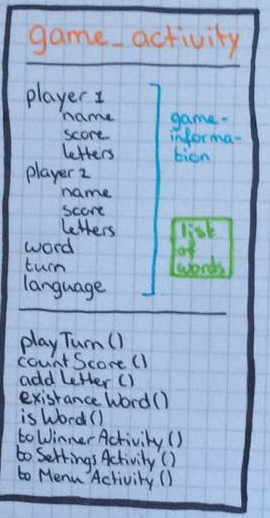 game_activity
player 1
name
score
letters
player 2
name
score
letters
word
turn
language
game-
informa-
tion
list
of
words
playTurn()
countScore()
addLetter()
existanceWord()
isWord()
toWinnerActivity()
toSettingsActivity()
toMenuActivity()